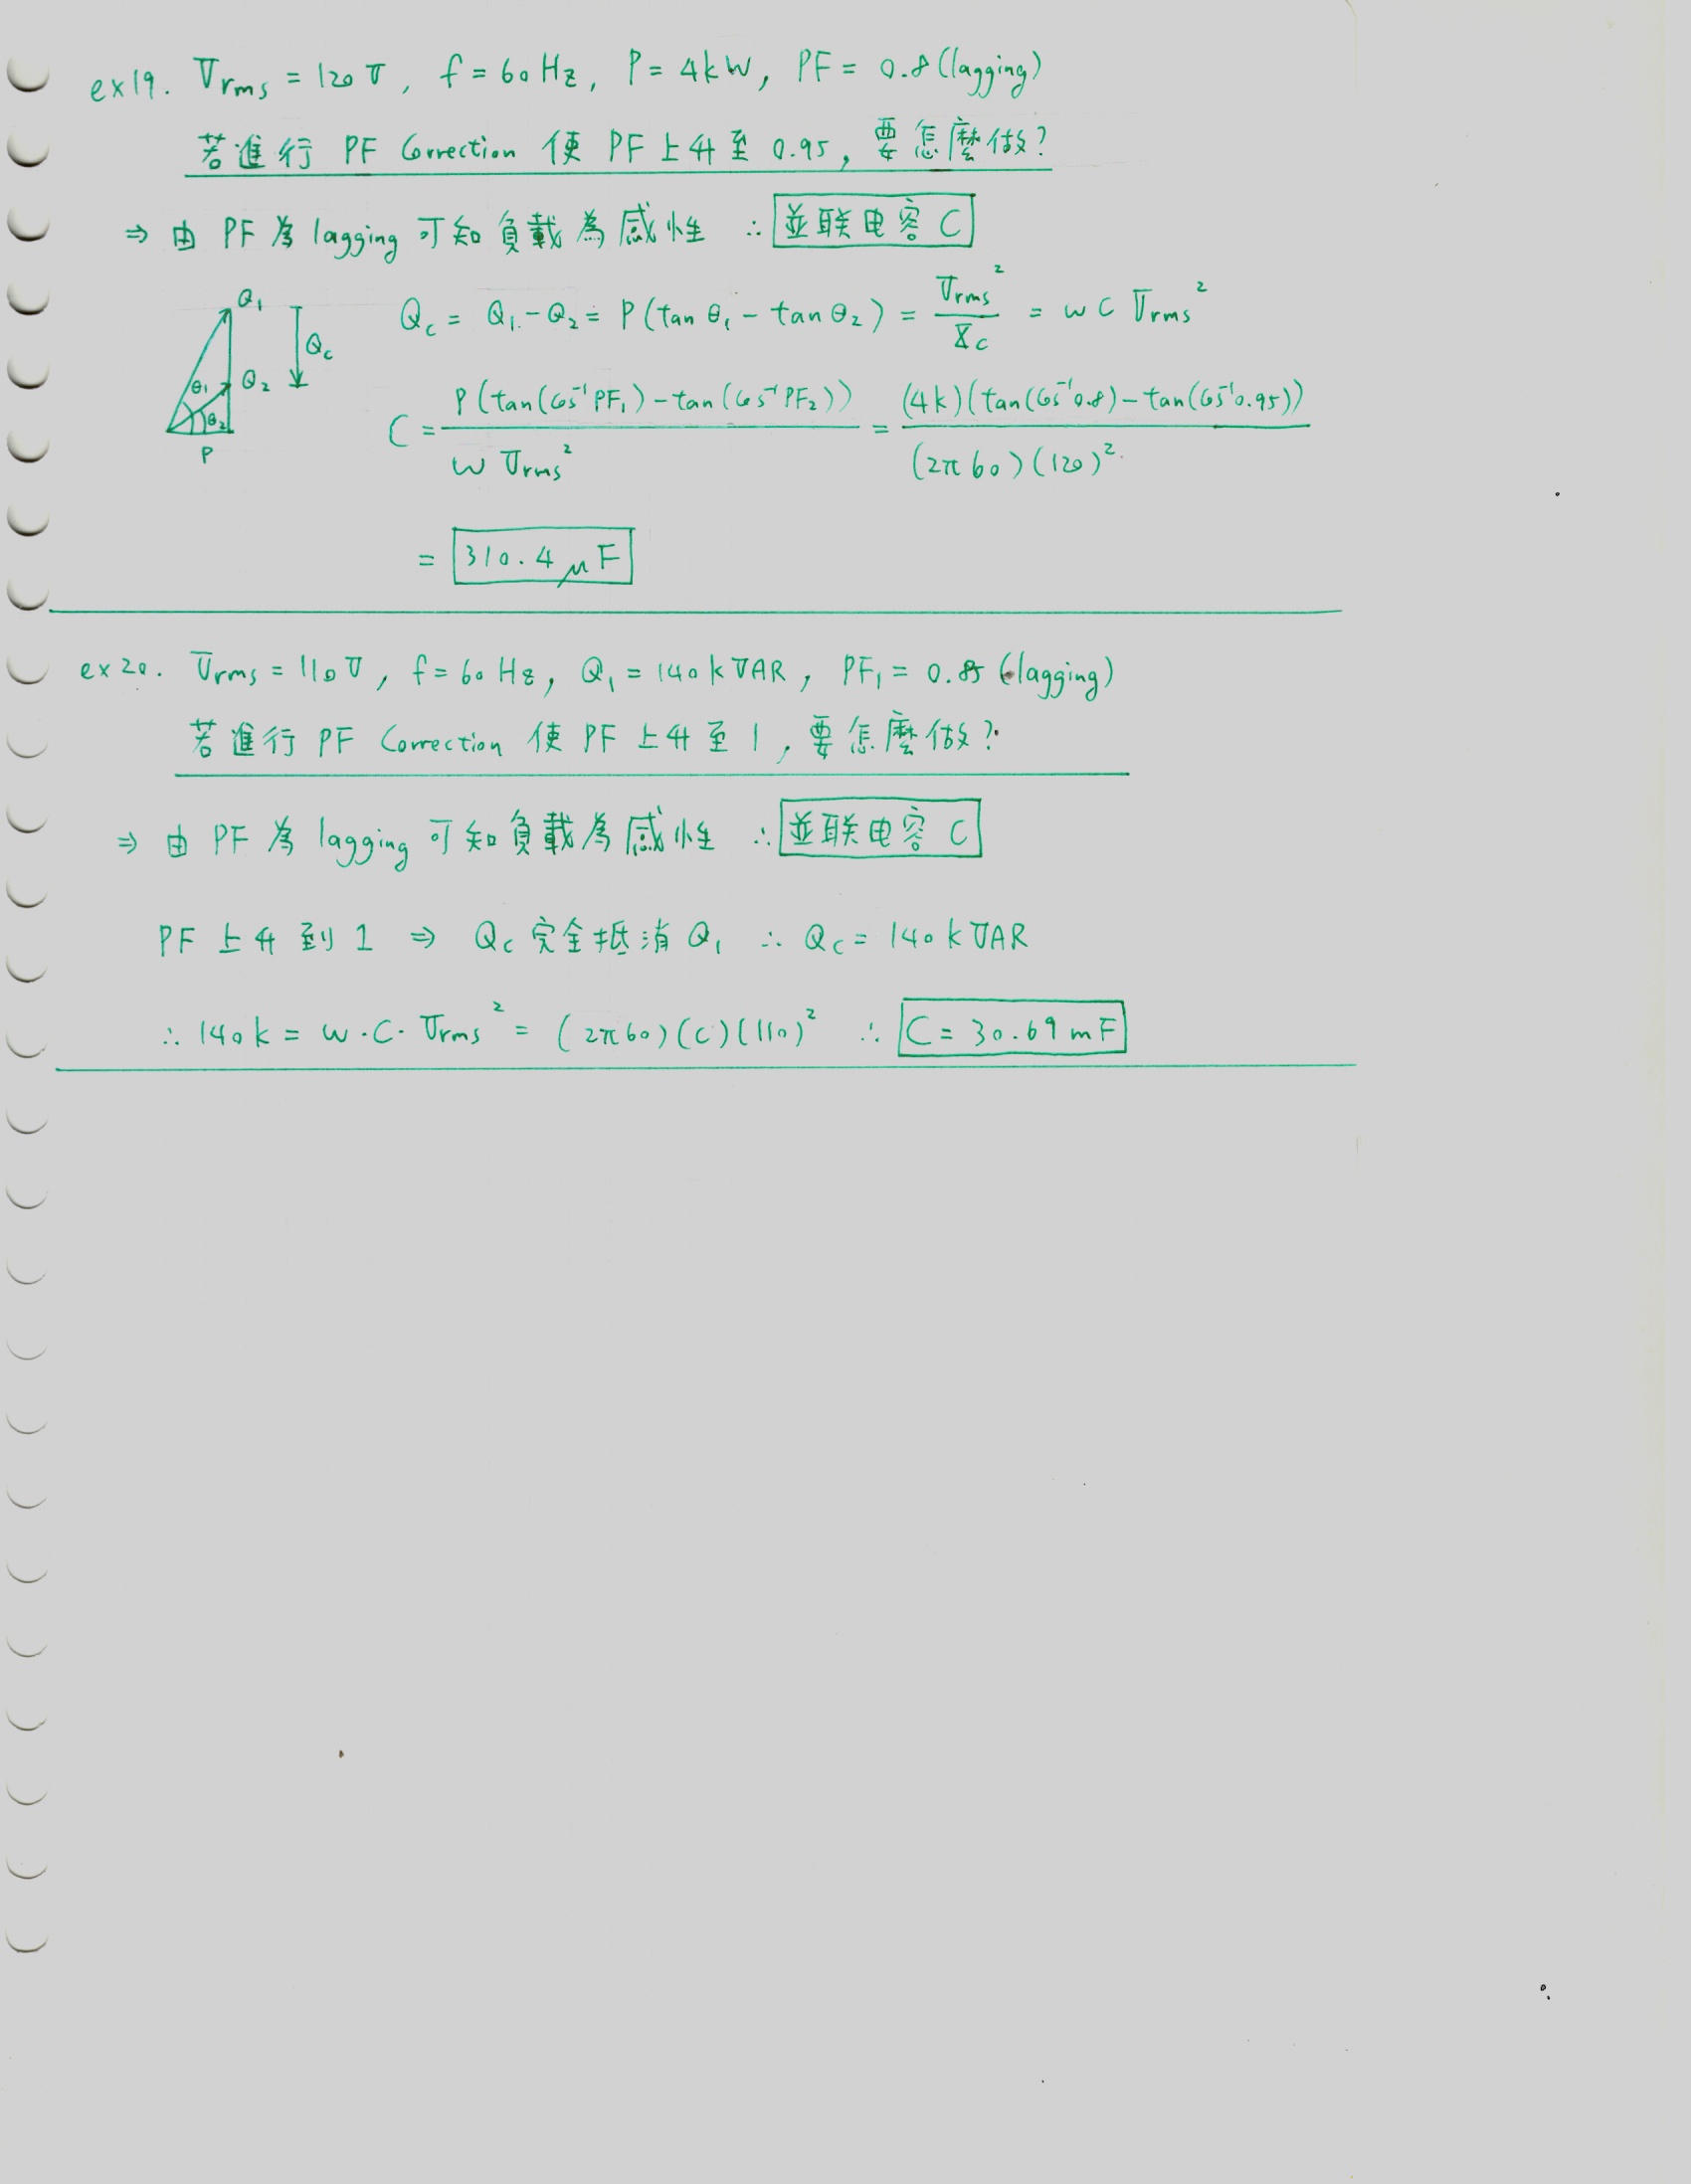 ex19. Vrms = 120 V, f = 60 Hz, P = 4kW, PF = 0.8 (lagging)
若進行 PF Correction 使 PF 上升至 0.95, 要怎麼做?
⇒ 由 PF 為 lagging 可知負載為感性 ∴ 並联电容 C
Q₁
Q₂
Qc
θ₁
θ₂
P
Qc = Q₁ - Q₂ = P(tan θ₁ - tan θ₂) = Vrms² / Xc = ω C Vrms²
C = P(tan(cos⁻¹PF₁) - tan(cos⁻¹PF₂)) / ω Vrms² = (4k)(tan(cos⁻¹0.8) - tan(cos⁻¹0.95)) / (2π60)(120)²
= 310.4 μF
ex20. Vrms = 110 V, f = 60 Hz, Q₁ = 140 kVAR, PF₁ = 0.85 (lagging)
若進行 PF Correction 使 PF 上升至 1, 要怎麼做?
⇒ 由 PF 為 lagging 可知負載為感性 ∴ 並联电容 C
PF 上升到 1 ⇒ Qc 完全抵消 Q₁ ∴ Qc = 140 kVAR
∴ 140k = ω·C·Vrms² = (2π60)(C)(110)² ∴ C = 30.69 mF